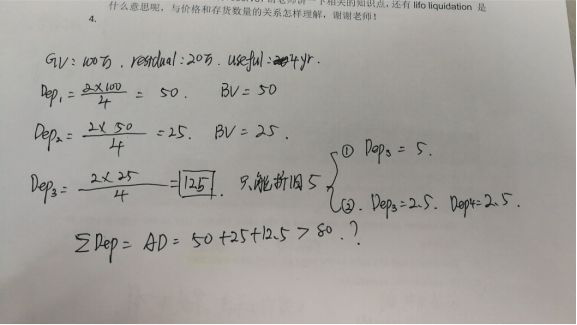 什么意思呢，与价格和存货数量的关系怎样理解，谢谢老师！
相关的知识点，还有 lifo liquidation 是
4.
GV = 100万 . residual : 20万 . useful : 4 yr .
Dep₁ = 2×100 / 4 = 50 . BV = 50
Dep₂ = 2×50 / 4 = 25 . BV = 25 .
Dep₃ = 2×25 / 4 = 12.5 . 只能折旧 5
① Dep₃ = 5 .
② . Dep₃ = 2.5 . Dep4 = 2.5 .
ΣDep = AD = 50 + 25 + 12.5 > 80 . ?